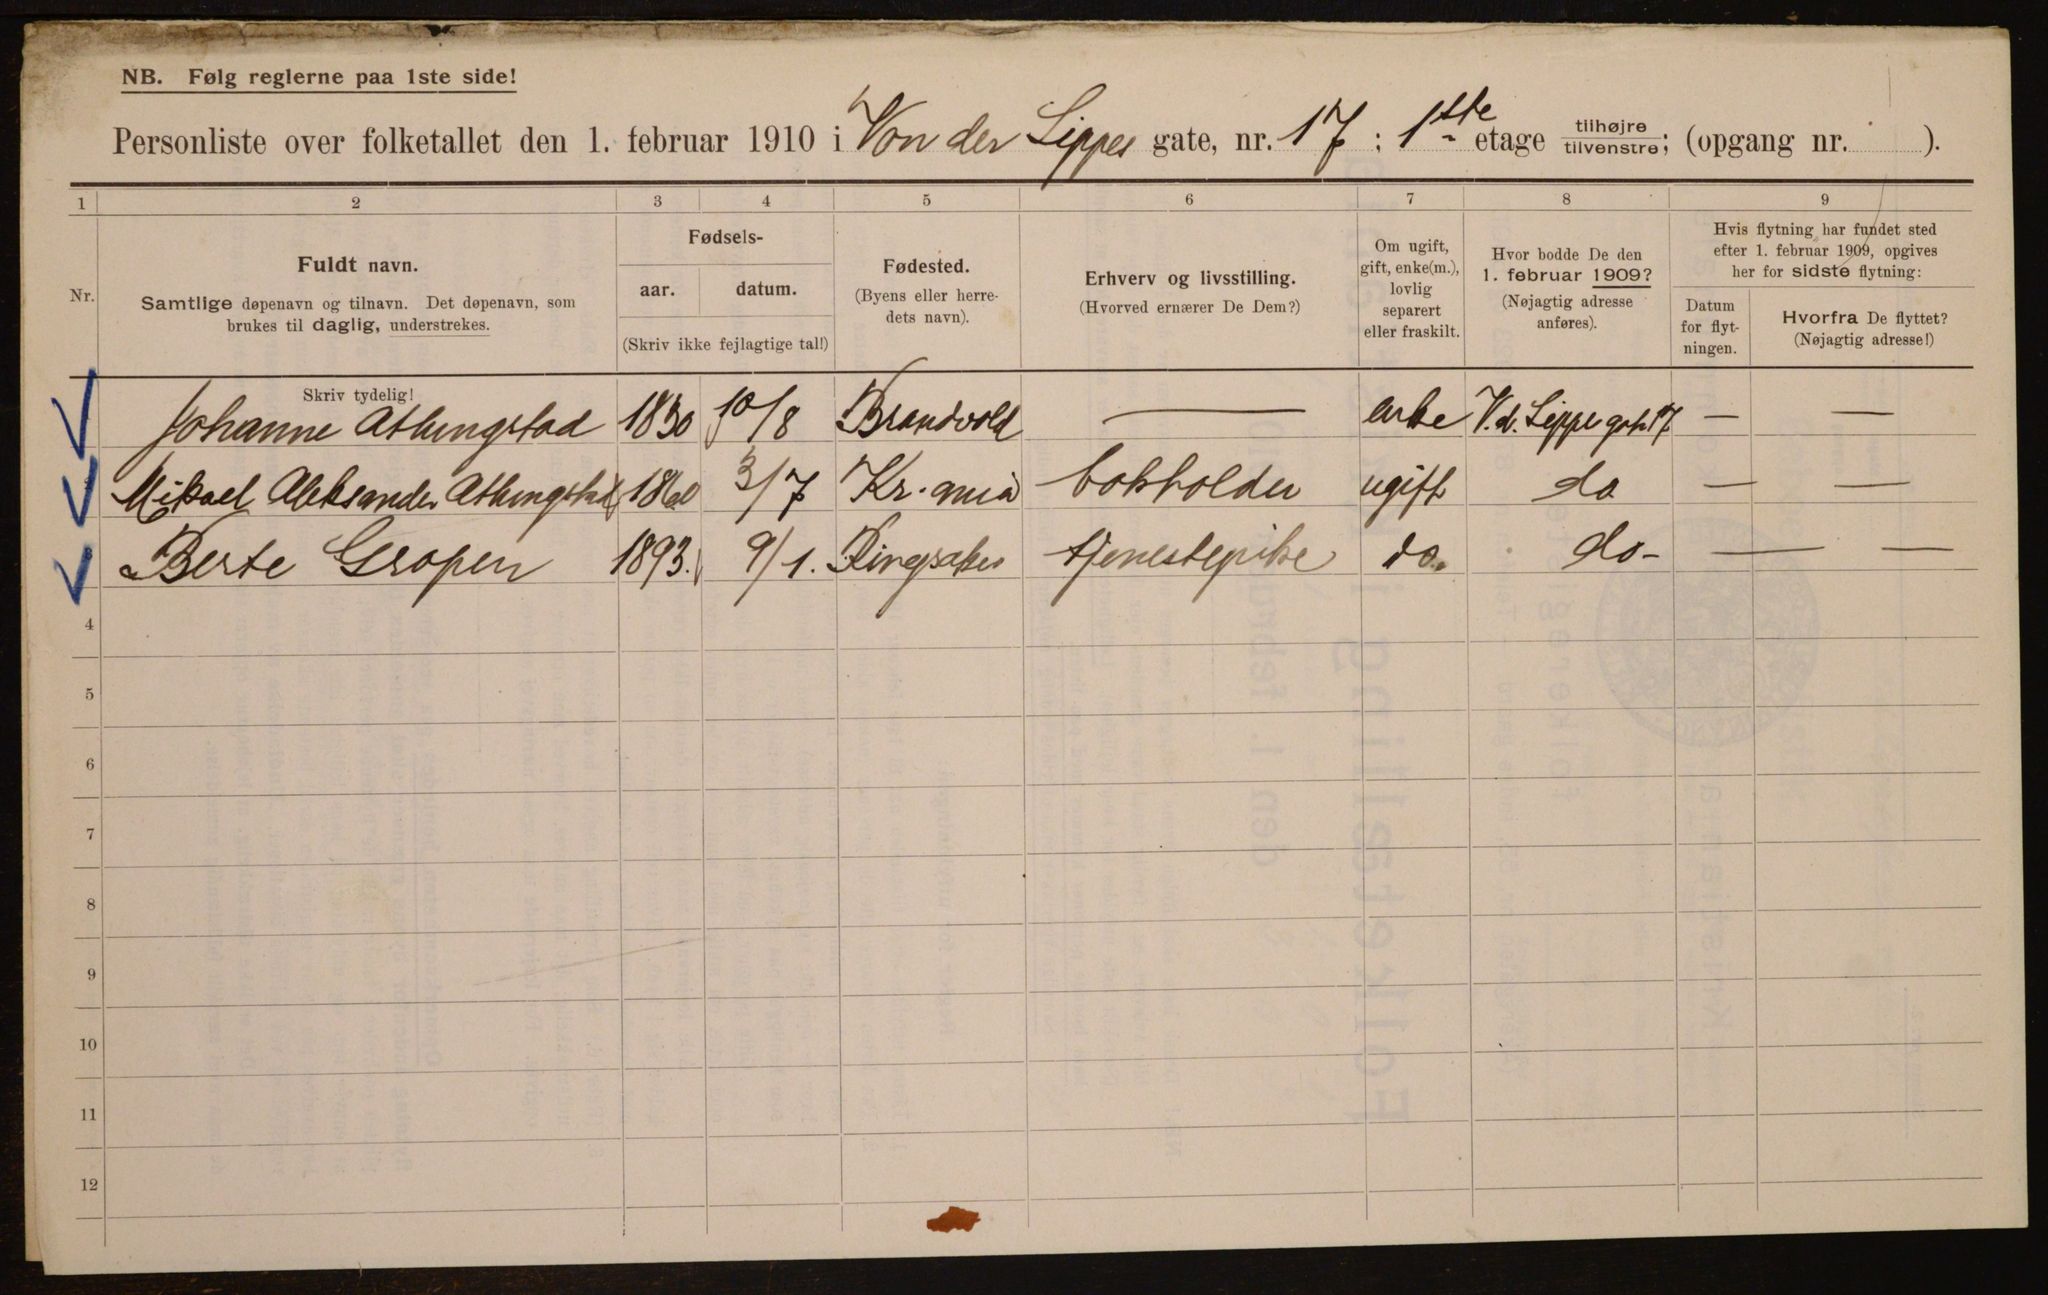 NB. Følg reglerne paa 1ste side!
Personliste over folketallet den 1. februar 1910 i Von der Lippes gate, nr. 17 ; 1ste etage tilhøjre tilvenstre; (opgang nr. ).
1 2 3 4 5 6 7 8 9
Nr.
Fuldt navn.
Samtlige døpenavn og tilnavn. Det døpenavn, som
brukes til daglig, understrekes.
Fødsels-
aar. datum.
(Skriv ikke fejlagtige tal!)
Fødested.
(Byens eller herre-
dets navn).
Erhverv og livsstilling.
(Hvorved ernærer De Dem?)
Om ugift,
gift, enke(m.),
lovlig
separert
eller fraskilt.
Hvor bodde De den
1. februar 1909?
(Nøjagtig adresse
anføres).
Hvis flytning har fundet sted
efter 1. februar 1909, opgives
her for sidste flytning:
Datum
for flyt-
ningen.
Hvorfra De flyttet?
(Nøjagtig adresse!)
Skriv tydelig!
Johanne Athungstad 1830 10/8 Brandvold — enke V. d. Lippe gt. 17 — —
Mikael Aleksander Athungstad 1860 3/7 Kr.ania bokholder ugift do — —
3 Berte Gropen 1893. 9/1. Ringsaker tjenestepike do. do- — —
4
5
6
7
8
9
10
11
12